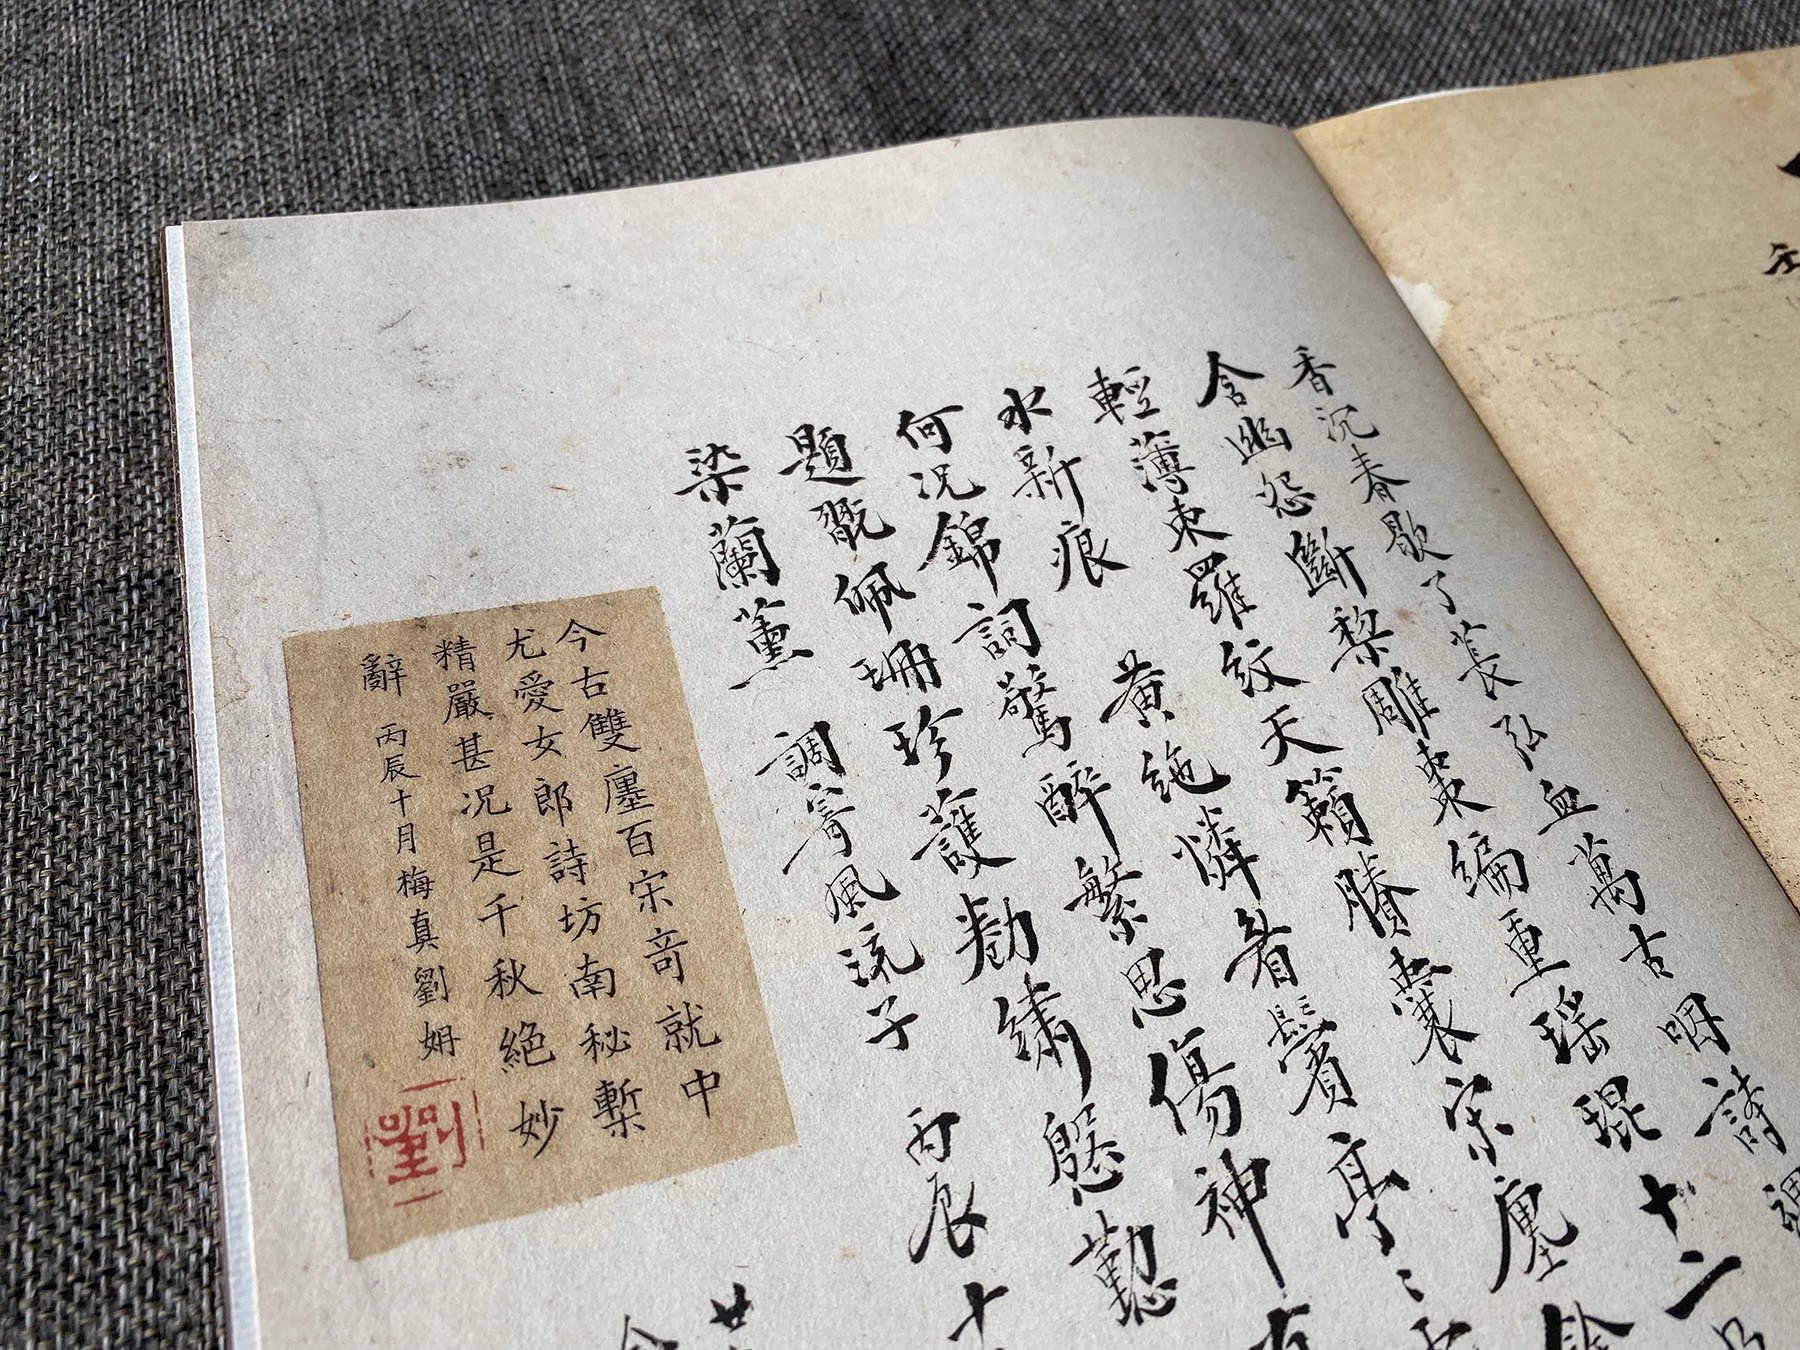 香沉春歇了萇弘血萬古咽詩
含幽怨斷棃雕棗編重瑤琨十二
輕薄束羅紋天籟賸囊宋廛餘
水新痕 黃絶憐看鬢亭〻
何況錦詞驚醉繁思傷神
題翫佩珊珍護勸繡慇懃
染蘭薰 調寄風流子 丙辰十
廿
今古雙廛百宋奇就中
尤愛女郎詩坊南秘槧
精嚴甚況是千秋絕妙
辭 丙辰十月梅真劉姌
劉